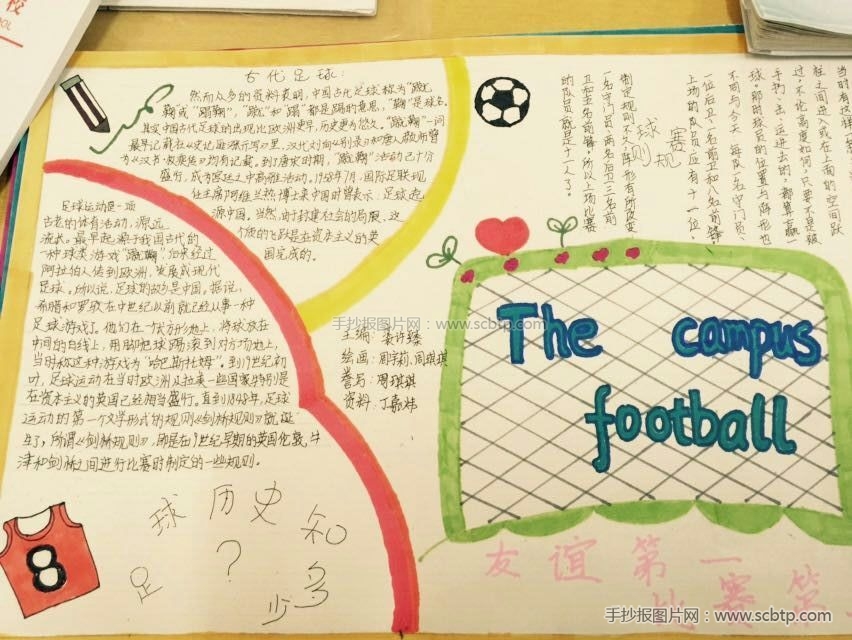 古代足球:
然而众多的资料表明,中国古代足球称为"蹴
鞠"或"蹋鞠","蹴"和"蹋"都是踢的意思,"鞠"是球名.
其实中国古代足球的出现比欧洲更早,历史更为悠久。"蹴鞠"一词
最早记载在《史记·
为《汉书·枚乘传》均有记载。到了唐宋时期,"蹴鞠"活动已十分
盛行,成为宫廷之中高雅活动。1958年7月,国际足联现
任主席阿维兰热博士来中国时曾表示:足球起
源中国。当然,由于封建社会的局限,这
是在资本主义的英
国完成的。
足球运动是一项
古老的体育活动,源远
流长。最早起源于我国古代的
一种球类游戏"蹴鞠"后来经过
阿拉伯人传到欧洲,发展成现代
足球。所以说,足球的故乡是中国。据说,
希腊和罗马在中世纪以前就已经从事一种
足球游戏了。他们在一个长方形场地上,将球放在
中间的白线上,用脚把球踢滚到对方场地上,
当时称这种游戏为"哈巴斯托姆"。到19世纪初
叶,足球运动在当时欧洲及拉美一些国家特别是
在资本主义的英国已经相当盛行。直到1848年,足球
运动的第一个文字形式的规则《剑桥规则》就诞
生了,所谓《剑桥规则》,即是在19世纪早期的英国伦敦,牛
津和剑桥之间进行比赛时制定的一些规则。
足球历史知多少?
8
主编:
绘画:
誊写:周琪琪
资料:
当时有这样一条
柱之间进入或在上面的空间越
过,不论高度如何,只要不是被
手扔、击、运进去的,都算赢一
球。那时球员的位置与阵形也
不同与今天,每队一名守门员、
一位后卫一名前卫和八名前锋,
上场的队员应有十一位,
球赛规则
制定规则不久,阵形有所改变
一名守门员两名后卫三名前
卫和五名前锋,所以上场比赛
的队员就是十一人了。
The campus
football
友谊第一
比赛第
手抄报图片网:www.scbtp.com
手抄报图片网:www.scbtp.com
校
OOL